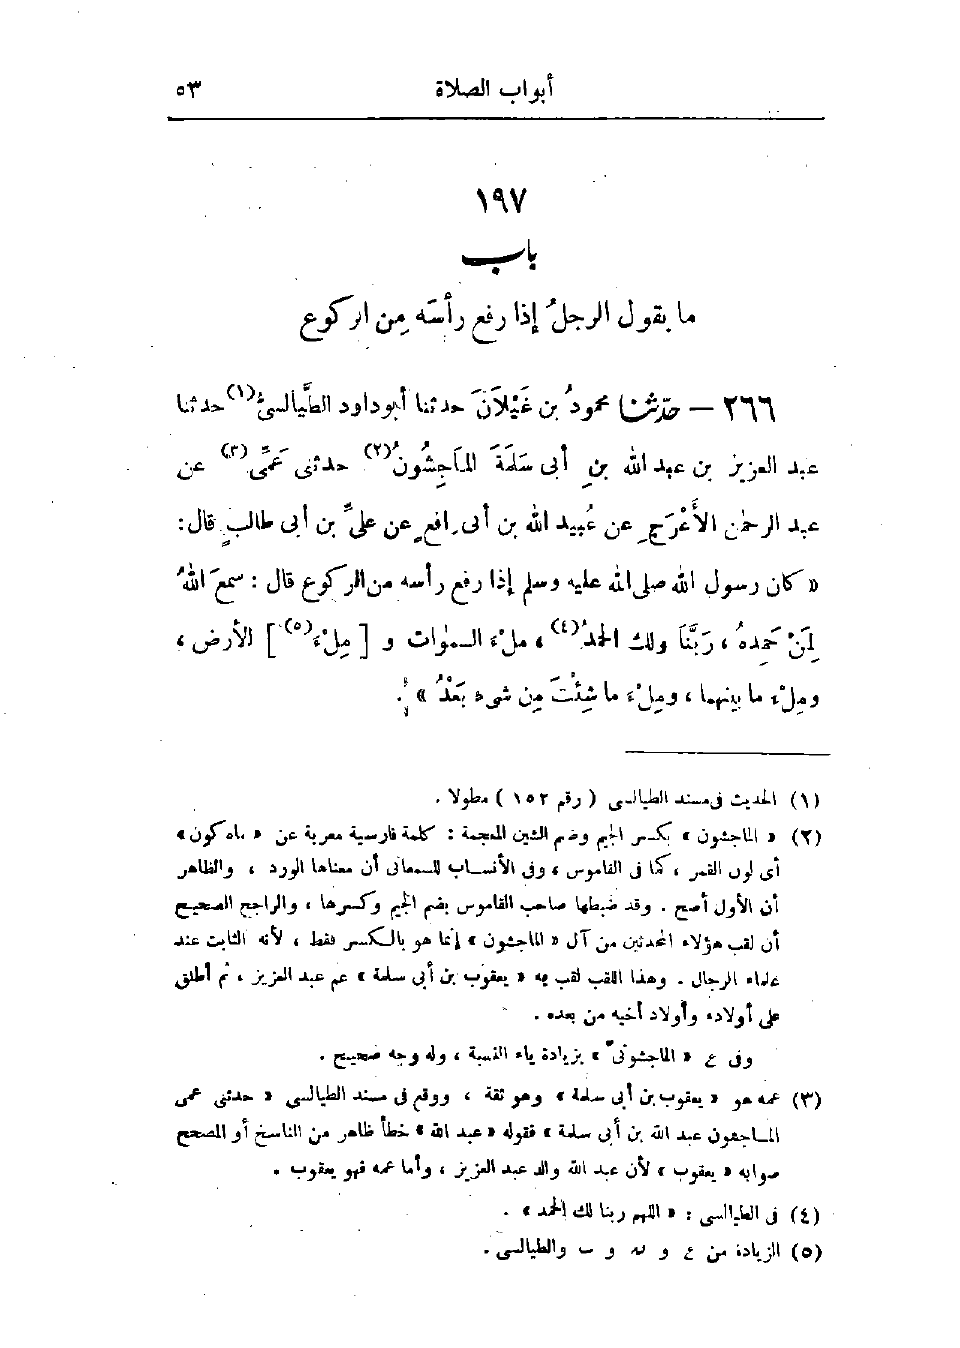 أبواب الصلاة ٥٣
١٩٧
باب
ما يقول الرجلُ إذا رفع رأسَه مِن الركوع
٢٦٦ — حدّثنا محمودُ بن غَيْلَانَ حدثنا أبو داود الطَّيالسىُّ(١) حدثنا
عبد العزيز بن عبد الله بنِ أبى سَلَمَةَ المَاجِشُونُ(٢) حدثنى عَمِّى(٣) عن
عبد الرحمٰن الأَعْرَجِ عن عُبيد الله بن أبى رافعٍ عن علىِّ بن أبى طالبٍ قال:
« كان رسول الله صلى الله عليه وسلم إذا رفع رأسه من الركوع قال : سمعَ اللهُ
لِمَنْ حَمِدهُ ، رَبَّنَا ولك الحمدُ(٤) ، ملءَ السمٰوات و [ مِلْءَ(٥) ] الأرض ،
ومِلْءَ ما بينهما ، ومِلْءَ ما شِئْتَ مِن شىء بَعْدُ » .
(١) الحديث فى مسند الطيالسى ( رقم ١٥٢ ) مطولا .
(٢) « الماجشون » بكسر الجيم وضم الشين المعجمة : كلمة فارسية معربة عن « ماه كون »
أى لون القمر ، كما فى القاموس ، وفى الأنساب للسمعانى أن معناها الورد ، والظاهر
أن الأول أصح . وقد ضبطها صاحب القاموس بضم الجيم وكسرها ، والراجح الصحيح
أن لقب هؤلاء المحدثين من آل « الماجشون » إنما هو بالكسر فقط ، لأنه الثابت عند
علماء الرجال . وهذا اللقب لقب به « يعقوب بن أبى سلمة » عم عبد العزيز ، ثم أطلق
على أولاده وأولاد أخيه من بعده .
وفى ع « الماجشونى » بزيادة ياء النسبة ، وله وجه صحيح .
(٣) عمه هو « يعقوب بن أبى سلمة » وهو ثقة ، ووقع فى مسند الطيالسى « حدثنى عمى
الماجشون عبد الله بن أبى سلمة » فقوله « عبد الله » خطأ ظاهر من الناسخ أو المصحح
صوابه « يعقوب » لأن عبد الله والد عبد العزيز ، وأما عمه فهو يعقوب .
(٤) فى الطيالسى : « اللهم ربنا لك الحمد » .
(٥) الزيادة من ع و نه و ب والطيالسى .